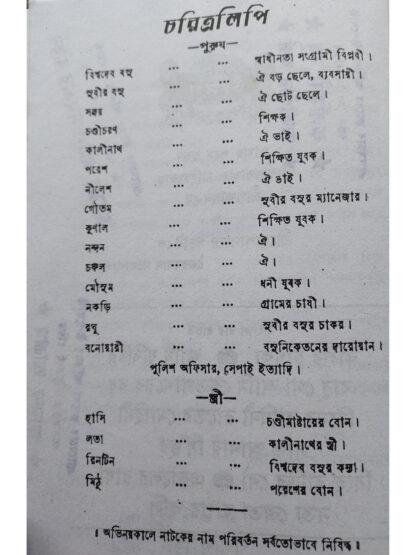 চরিত্রলিপি
—পুরুষ—
বিশ্বদেব বসু ... ... স্বাধীনতা সংগ্রামী বিপ্লবী।
সুবীর বসু ... ... ঐ বড় ছেলে, ব্যবসায়ী।
সঞ্জয় ... ... ঐ ছোট ছেলে।
চণ্ডীচরণ ... ... শিক্ষক।
কালীনাথ ... ... ঐ ভাই।
পরেশ ... ... শিক্ষিত যুবক।
নীলেশ ... ... ঐ ভাই।
গৌতম ... ... সুবীর বসুর ম্যানেজার।
কুণাল ... ... শিক্ষিত যুবক।
নন্দন ... ... ঐ।
চঞ্চল ... ... ঐ।
মৌসুম ... ... ধনী যুবক।
নকড়ি ... ... গ্রামের চাষী।
রঘু ... ... সুবীর বসুর চাকর।
বনোয়ারী ... ... বসুনিকেতনের দারোয়ান।
পুলিশ অফিসার, সেপাই ইত্যাদি।
—স্ত্রী—
হাসি ... ... চণ্ডীমাষ্টারের বোন।
লতা ... ... কালীনাথের স্ত্রী।
রিনটিন ... ... বিশ্বদেব বসুর কন্যা।
মিঠু ... ... পরেশের বোন।
। অভিনয়কালে নাটকের নাম পরিবর্তন সর্বতোভাবে নিষিদ্ধ।